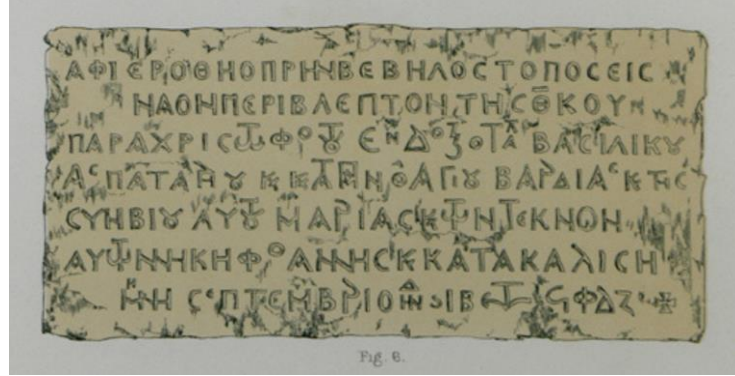 ΑΦΙΕΡΟΘΗΟΠΡΗΝΒΕΒΗΛΟϹΤΟΠΟϹΕΙϹ
ΝΑΟΝΠΕΡΙΒΛΕΠΤΟΝΤΗϹΘ̅ΚΟΥ
ΠΑΡΑΧΡΙϹΤΩΦΟΥ ΕΝΔΟΞΟΤΑ ΒΑϹΙΛΙΚȢ
ΑϹΠΑΤΑΗȢ Κ ΚΑΤΠΝΟ ΛΑΓΙȢ ΒΑΡΔΙΑϹ Κ ΤΗϹ
ϹΥΗΒΙȢ ΑΥΤȢ ΜΑΡΙΑϹ Κ ΤΩΝ ΤΕΚΝΟΝ
ΑΥΤΩΝ ΝΗΚΗΦΟ ΑΝΝΗϹ Κ ΚΑΤΑΚΑΛΙϹΗ
ΜΗΝ ϹΕΠΤΕΜΒΡΙΟ ΙΝΔ ΙΒ ΕΤ ϚΦΛΖ ✠
Fig. 6.